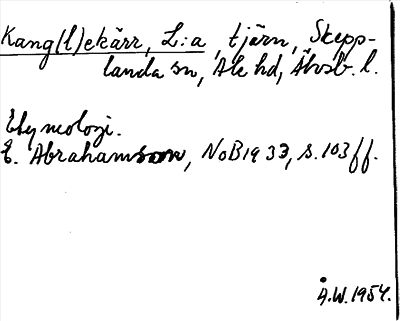 Kang(l)ekärr, L:a, tjärn, Skepp-
landa sn, Ale hd, Älvsb. l.
Etymologi.
E. Abrahamson, NoB 1933, s. 103 ff.
Å.W. 1954.